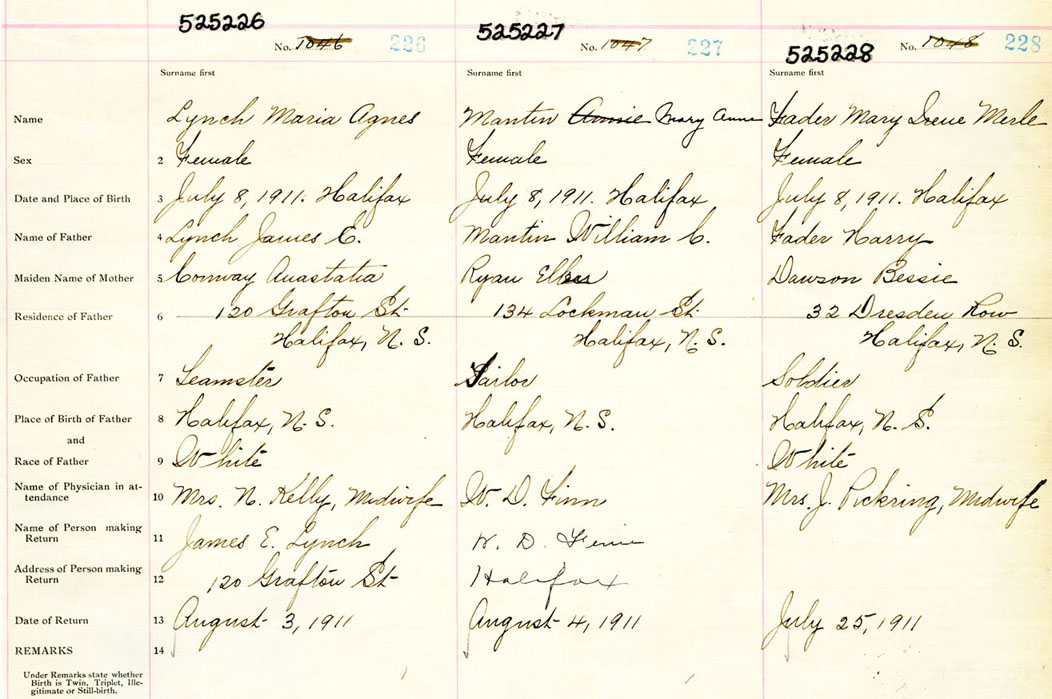 525226 525227 525228
No. 1046 226 No. 1047 227 No. 1048 228
Surname first Surname first Surname first
Name Lynch Maria Agnes Mantin Annie Mary Anne Fader Mary Irene Merle
Sex 2 Female Female Female
Date and Place of Birth 3 July 8, 1911. Halifax July 8, 1911. Halifax July 8, 1911. Halifax
Name of Father 4 Lynch James E. Mantin William C. Fader Harry
Maiden Name of Mother 5 Conway Anastatia Ryan Ellen Dawson Bessie
Residence of Father 6 120 Grafton St. 134 Lockman St. 32 Dresden Row
Halifax, N. S. Halifax, N. S. Halifax, N. S.
Occupation of Father 7 Teamster Sailor Soldier
Place of Birth of Father 8 Halifax, N. S. Halifax, N. S. Halifax, N. S.
and
Race of Father 9 White White
Name of Physician in at-
tendance 10 Mrs. N. Kelly, Midwife W. D. Finn Mrs. J. Pickring, Midwife
Name of Person making
Return 11 James E. Lynch W. D. Finn
Address of Person making
Return 12 120 Grafton St Halifax
Date of Return 13 August 3, 1911 August 4, 1911 July 25, 1911
REMARKS 14
Under Remarks state whether
Birth is Twin, Triplet, Ille-
gitimate or Still-birth.